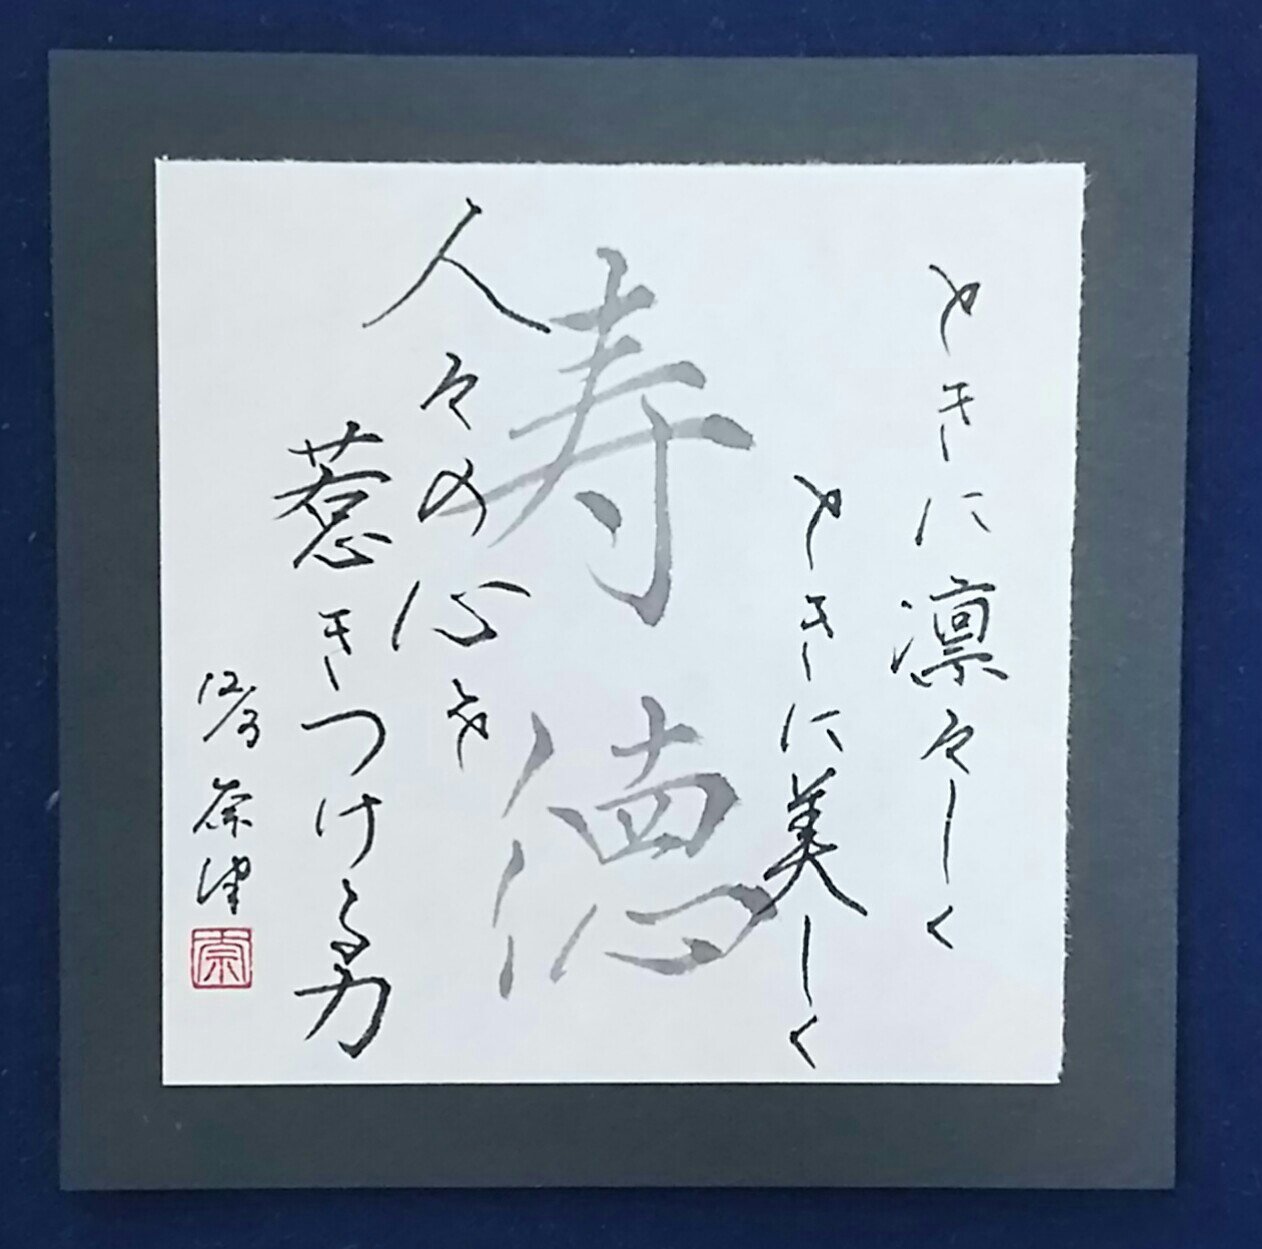 ときに凛々しく
ときに美しく
寿徳
人々の心を
惹きつける力
12/3
奈津